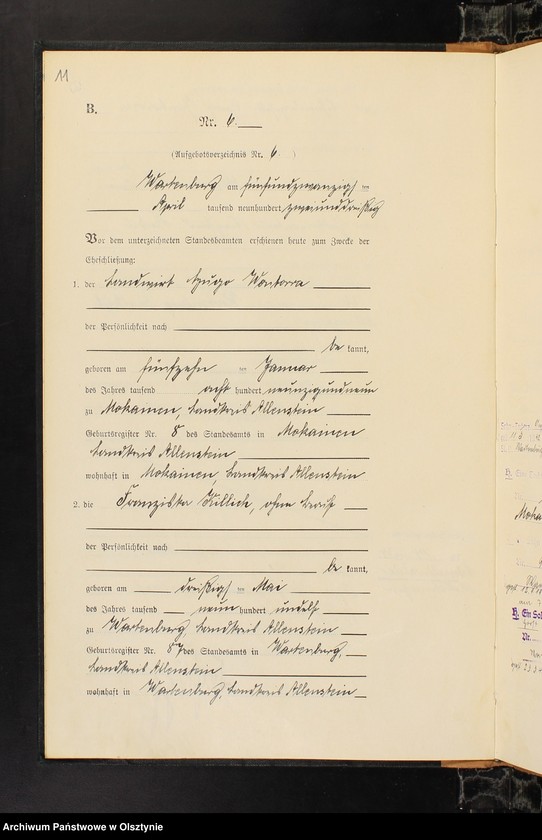 11
B.
Nr. 6.
(Aufgebotsverzeichnis Nr. 6. )
Wartenburg am fünfundzwanzigsten
April tausend neunhundert zweiunddreißig
Vor dem unterzeichneten Standesbeamten erschienen heute zum Zwecke der
Eheschließung:
1. der Landwirt Hugo Wontorra
der Persönlichkeit nach
be kannt,
geboren am fünfzehn ten Januar
des Jahres tausend acht hundert neunzigundneun
zu Mokainen, Landkreis Allenstein
Geburtsregister Nr. 8 des Standesamts in Mokainen
Landkreis Allenstein
wohnhaft in Mokainen, Landkreis Allenstein
2. die Franziska Killich, ohne Beruf
der Persönlichkeit nach
be kannt,
geboren am dreißigsten Mai
des Jahres tausend neun hundert undelf
zu Wartenburg, Landkreis Allenstein
Geburtsregister Nr. 87 des Standesamts in Wartenburg,
Landkreis Allenstein
wohnhaft in Wartenburg, Landkreis Allenstein
H. Ein Soh
Nr.
Archiwum Państwowe w Olsztynie